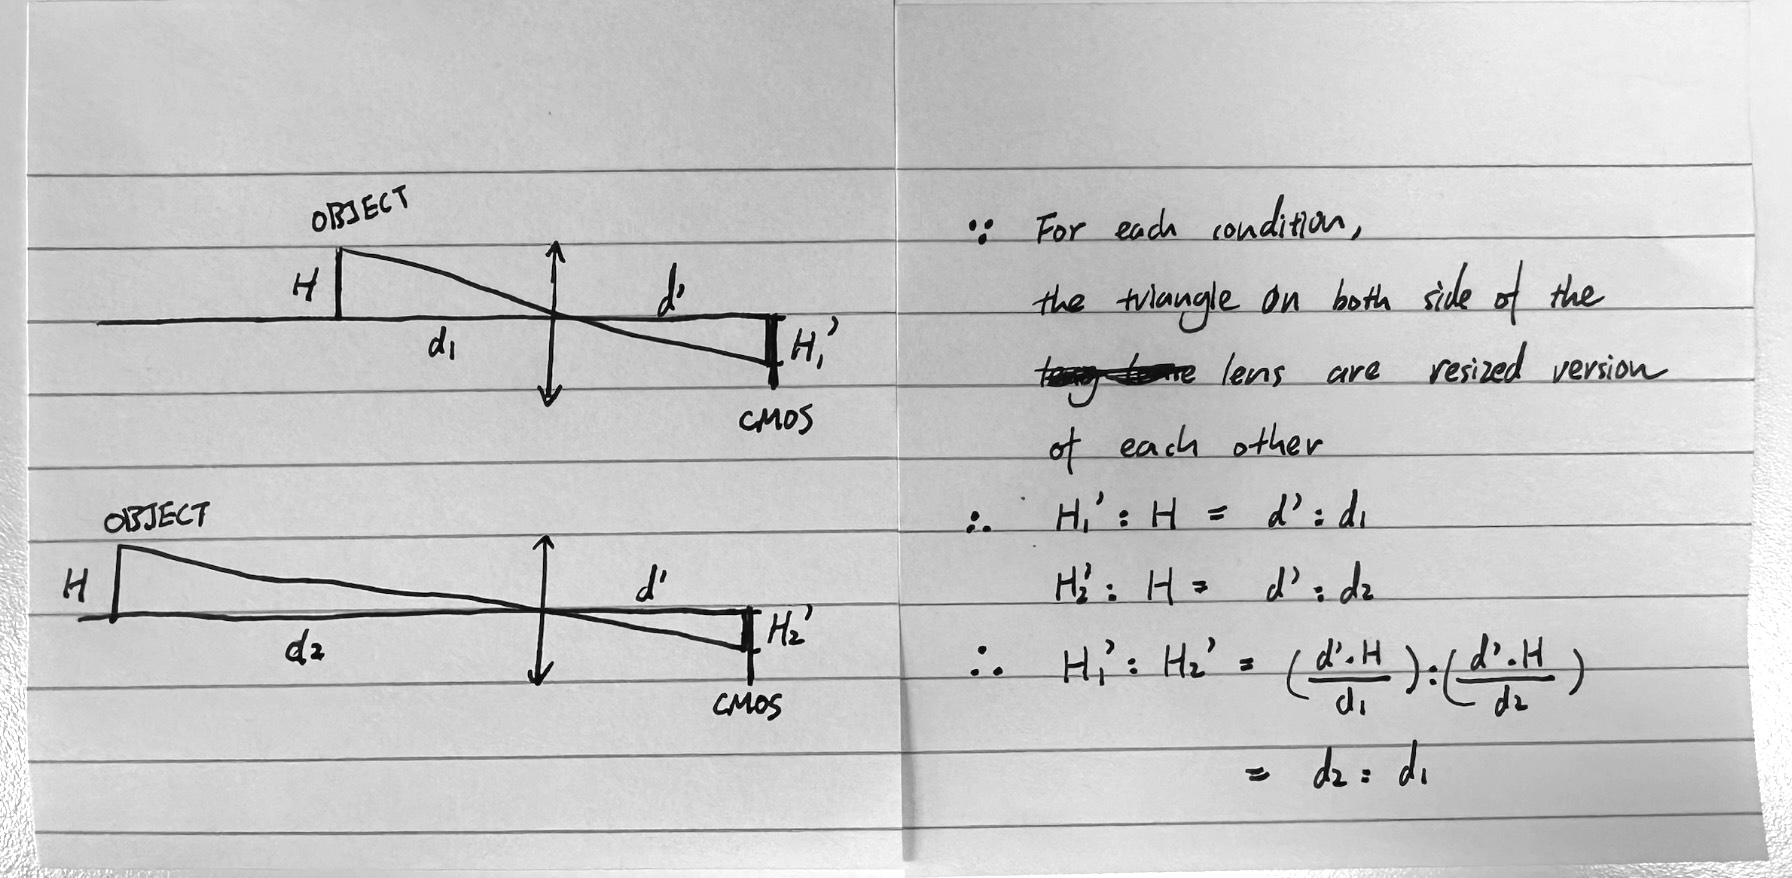 OBJECT
H
d₁
d'
H₁'
CMOS
OBJECT
H
d₂
d'
H₂'
CMOS
∵ For each condition,
the triangle on both side of the
lens are resized version
of each other
∴ H₁' : H = d' : d₁
H₂' : H = d' : d₂
∴ H₁' : H₂' = (d'·H / d₁) : (d'·H / d₂)
= d₂ : d₁